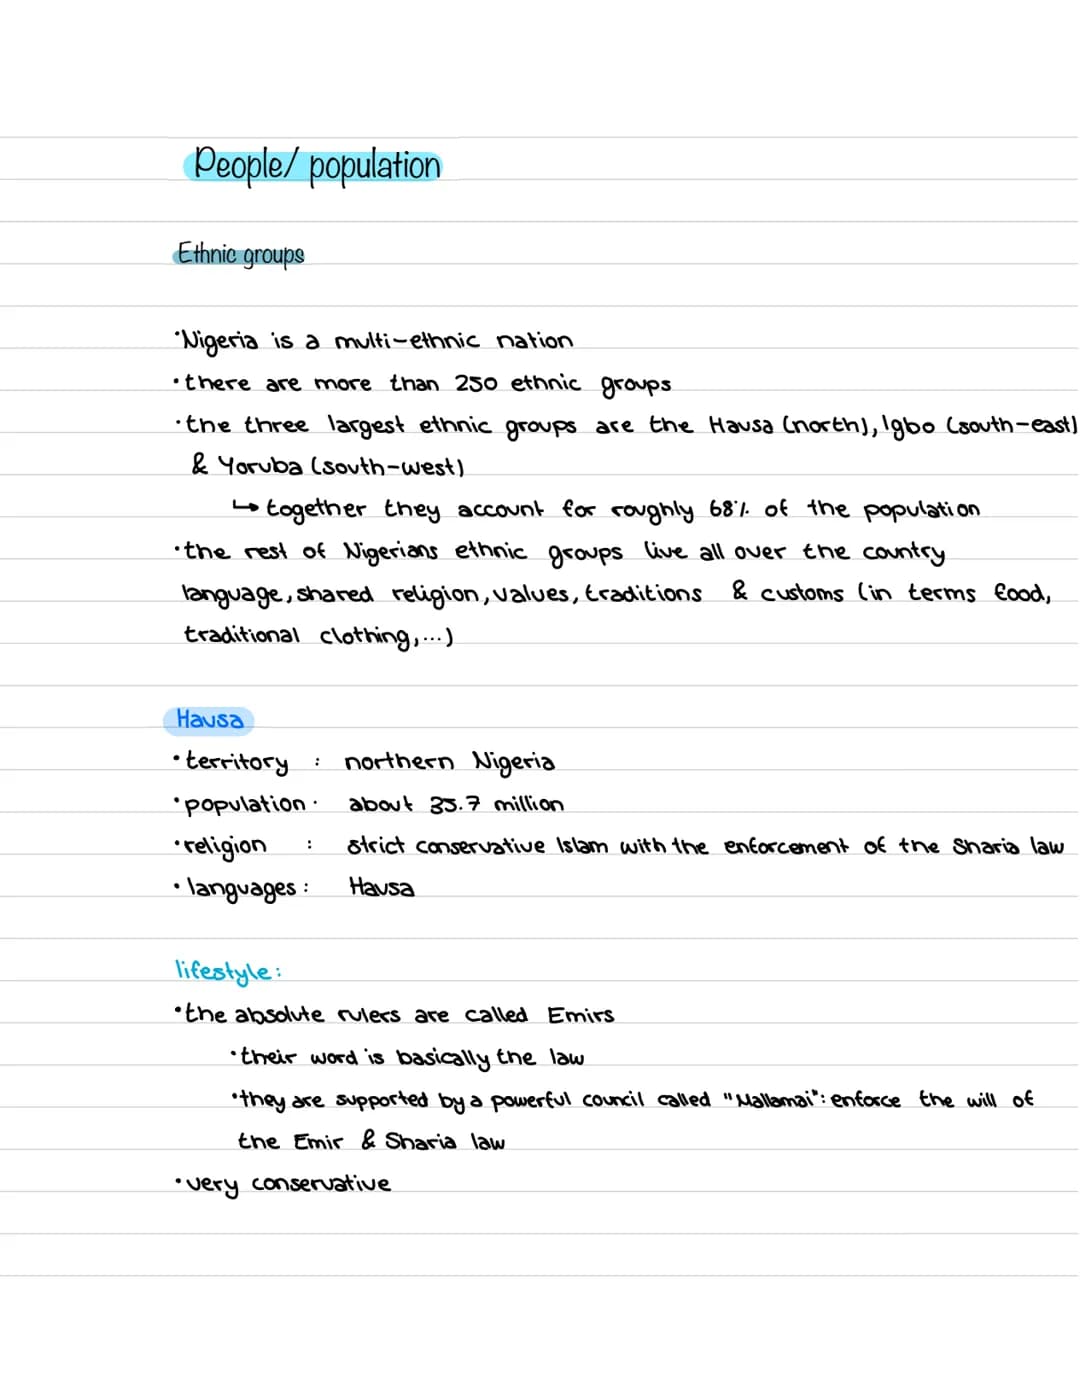 People/ population
Ethnic groups
•Nigeria is a multi-ethnic nation
•there are more than 250 ethnic groups
•the three largest ethnic groups are the Hausa (north), Igbo (south-east)
& Yoruba (south-west)
↳ together they account for roughly 68% of the population
•the rest of Nigerians ethnic groups live all over the country
language, shared religion, values, traditions & customs (in terms food,
traditional clothing,...)
Hausa
•territory : northern Nigeria
•population · about 35.7 million
•religion : strict conservative Islam with the enforcement of the Sharia law
•languages : Hausa
lifestyle:
•the absolute rulers are called Emirs
•their word is basically the law
•they are supported by a powerful council called "Mallamai": enforce the will of
the Emir & Sharia law
•very conservative